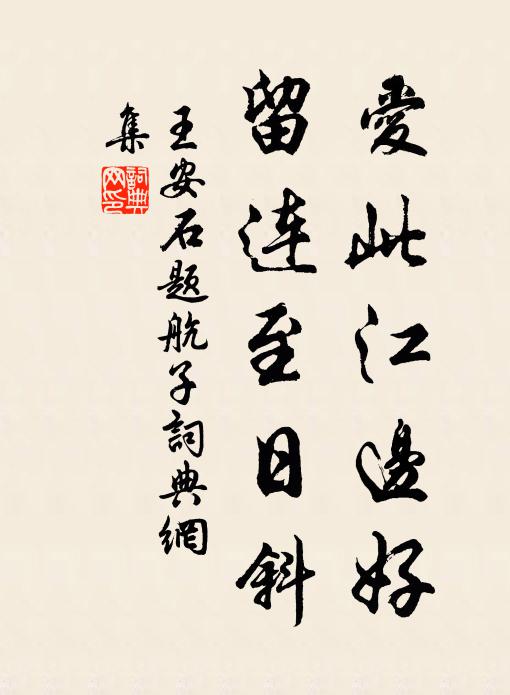 愛此江邊好
留連至日斜
王安石題舫子詞典網
集
詞典網印